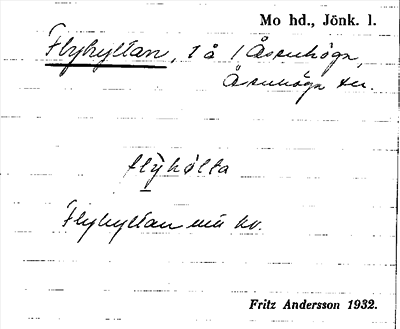 Mo hd., Jönk. l.
Flyhyltan, 1 å i Åsenhöga,
Åsenhöga sn.
flỳhølta
Flyhyltan uiu kv.
Fritz Andersson 1932.